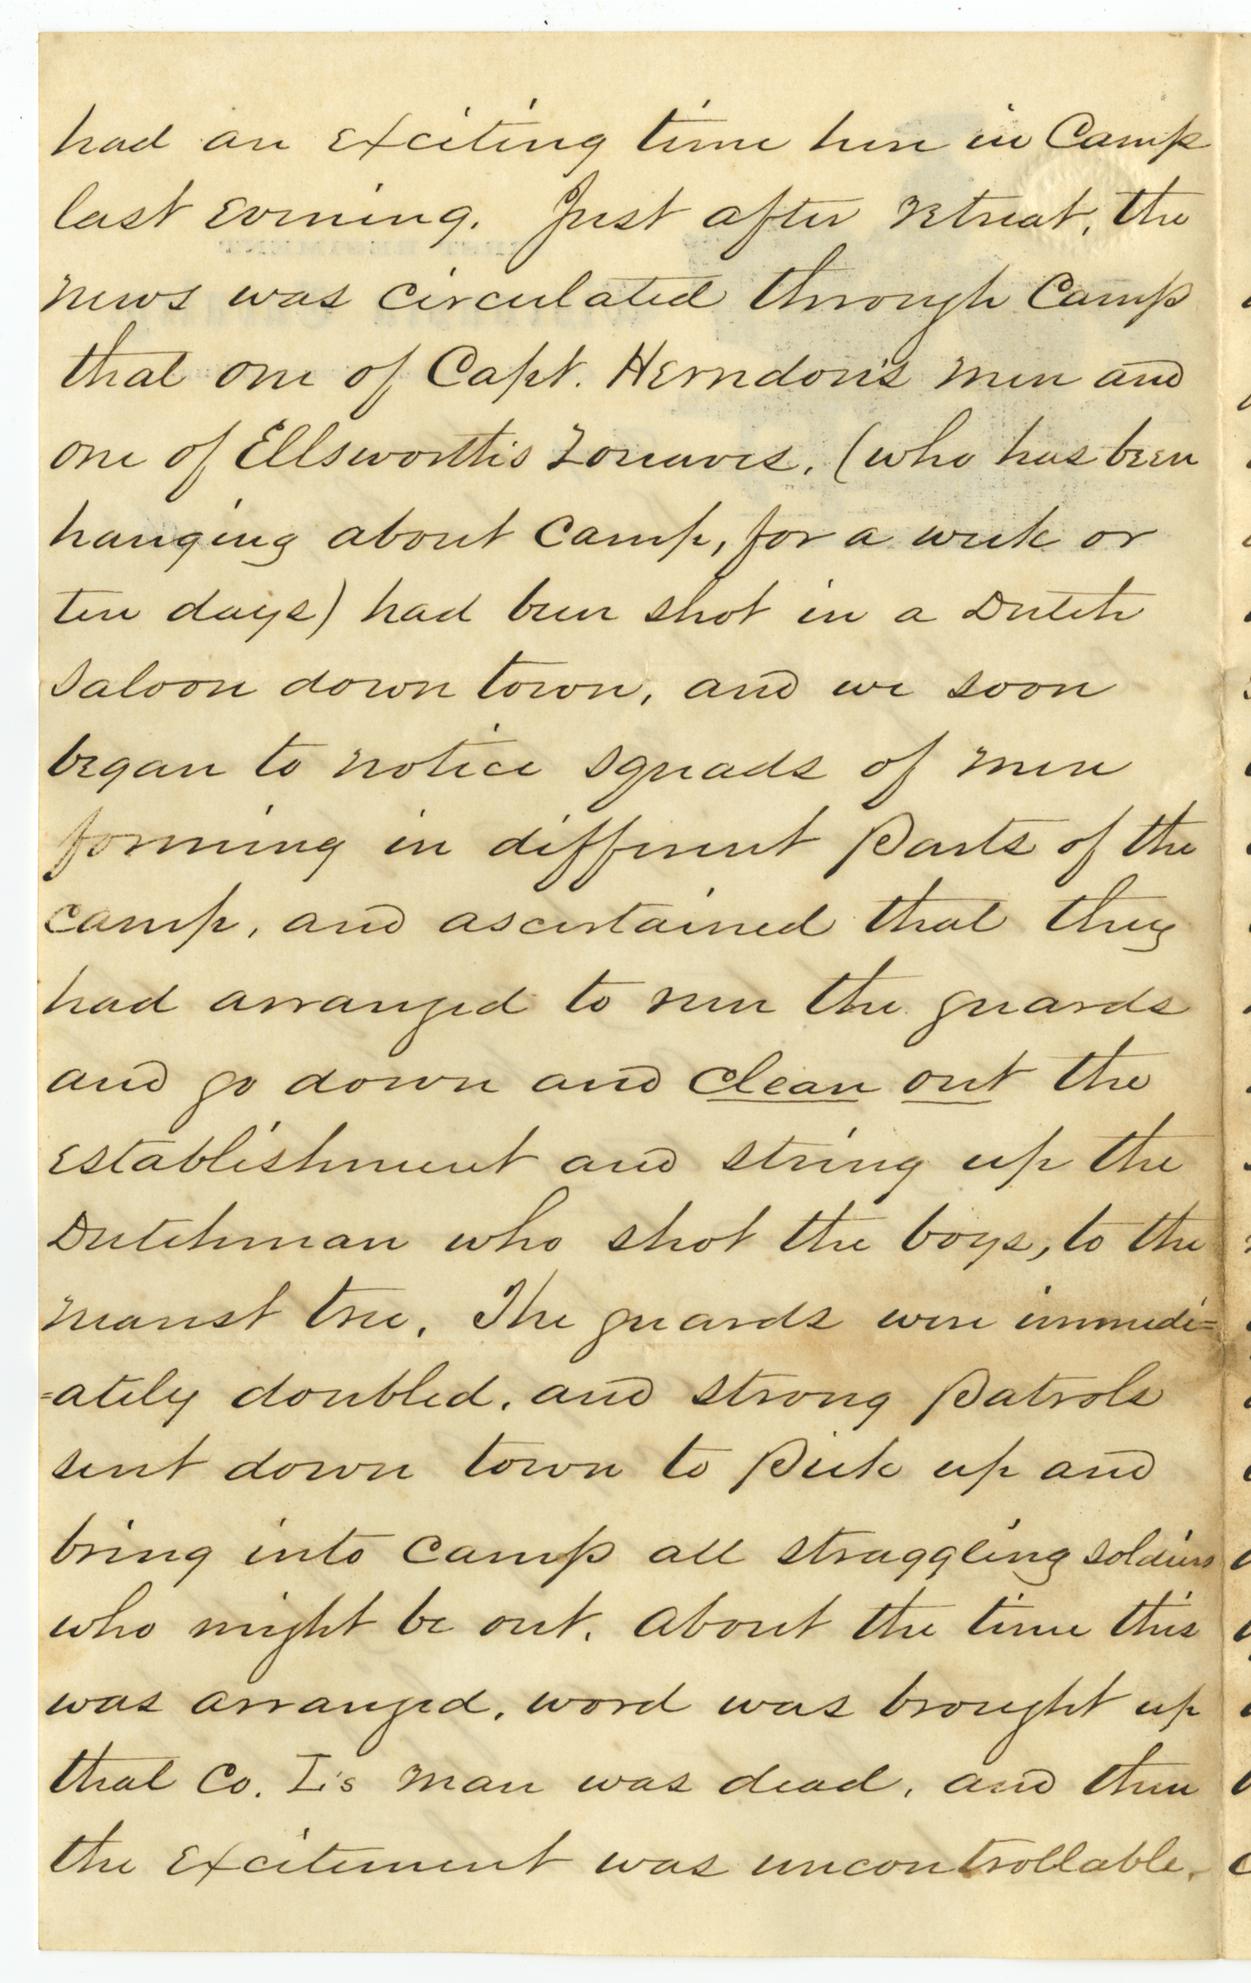 had an exciting time here in Camp
last evening. Just after retreat, the
news was circulated through Camp
that one of Capt. Herndon's men and
one of Ellsworth's Zouaves, (who has been
hanging about camp, for a week or
ten days) had been shot in a Dutch
saloon down town, and we soon
began to notice squads of men
forming in different parts of the
camp, and ascertained that they
had arranged to run the guards
and go down and clean out the
establishment and string up the
Dutchman who shot the boys, to the
nearest tree. The guards were immedi=
=ately doubled, and strong patrols
sent down town to pick up and
bring into camp all straggling soldiers
who might be out. About the time this
was arranged, word was brought up
that Co. I's man was dead, and then
the excitement was uncontrollable.